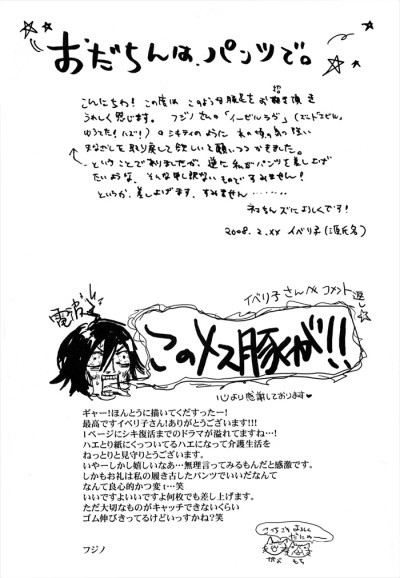 おだちんは、パンツで。
こんにちわ! この度は このような 豚足を お招き 頂き
うれしく思じます。 フジノ さんの 「イーゼルラヴ」
のシキティのように あの頃の
まなざしを取り戻して欲しいと願いつつかきました。
ということでありましたが、逆に私がパンツを差し上げ
たいような、そんな申し訳ないものですみません!
というか、差し上げます、すみません………
ネコちんズによろしくです!
2008.2.XX イベリ子(源氏名)
イベリ子さんへ コメント返し☆
電波
このメス豚が!!
心より感謝しております♥
ギャー!ほんとうに描いてくだすったー!
最高ですイベリ子さん!ありがとうございます!!!
1ページにシキ復活までのドラマが溢れてますね…!
ハエとり紙にくっついてるハエになって介護生活を
ねっとりと見守りとうございます。
いやーしかし嬉しいなあ…無理言ってみるもんだと感激です。
しかもお礼は私の履き古したパンツでいいだなんて
なんて良心的かつ変t…笑
いいですよいいですよ何枚でも差し上げます。
ただ大切なものがキャッチできないくらい
ゴム伸びきってるけどいっすかね?笑
フジノ